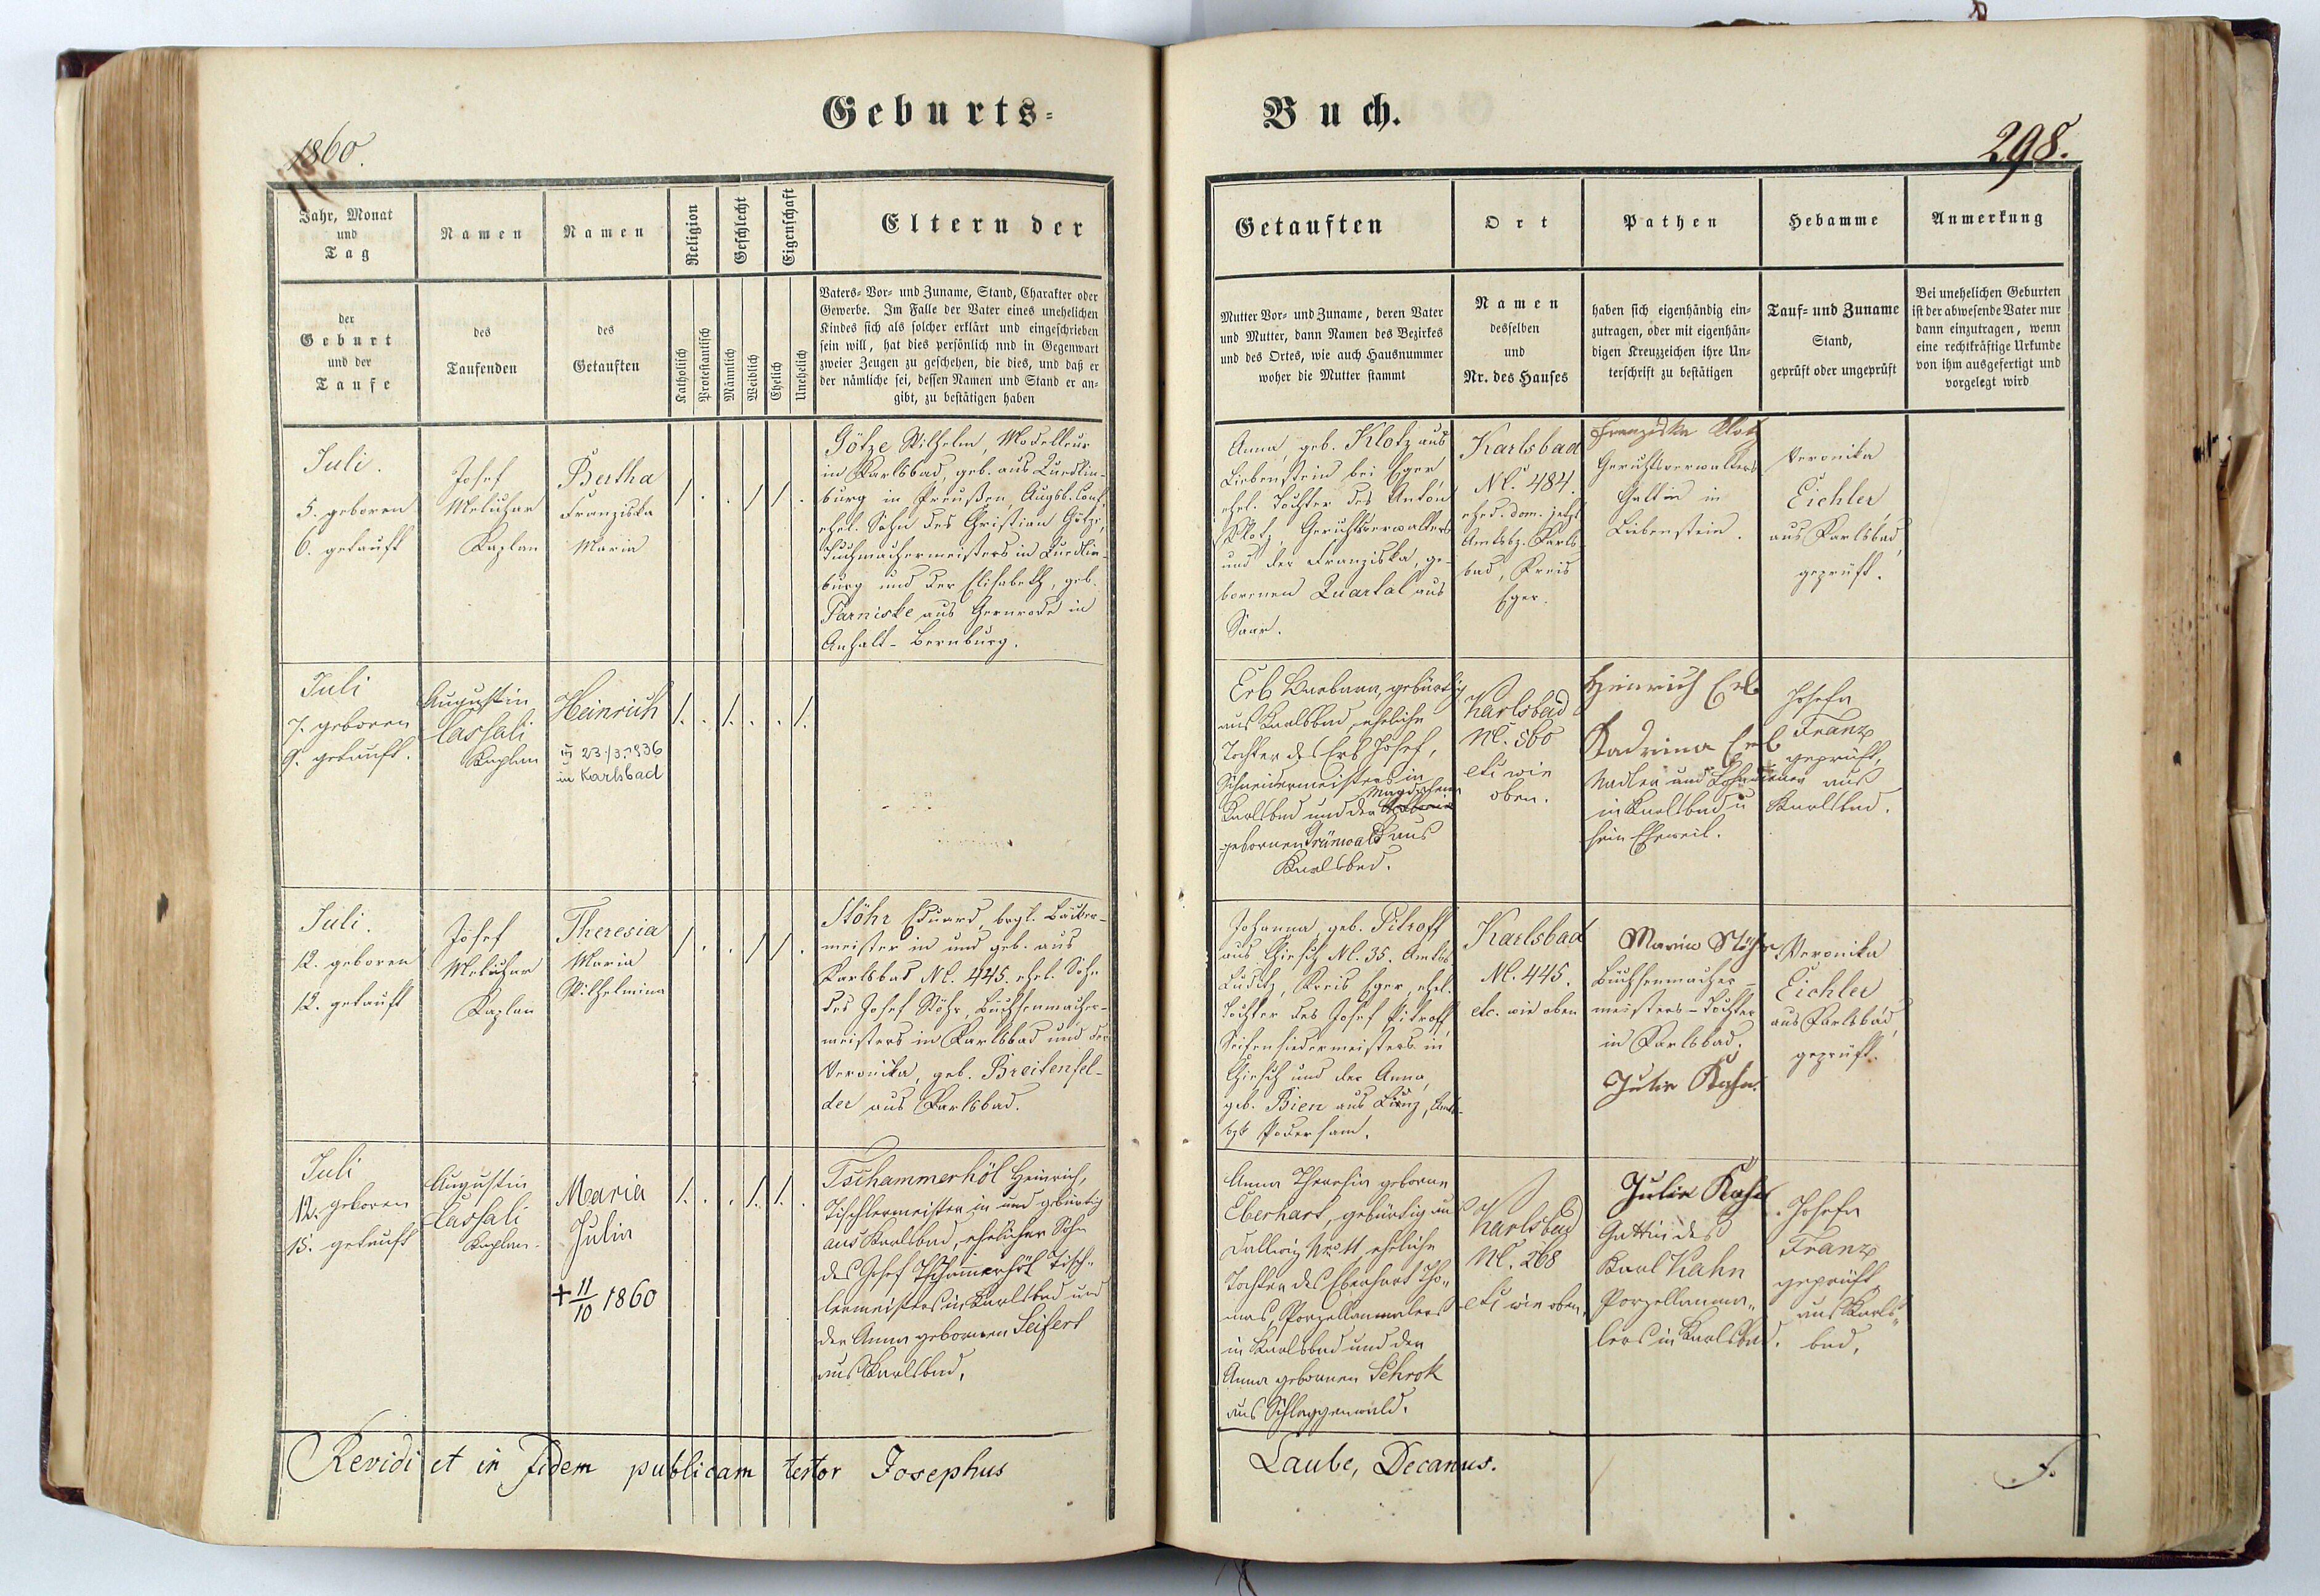 Geburts-
Buch.
1860.
298.
Jahr, Monat
und
Tag
Namen
Namen
Religion
Geschlecht
Eigenschaft
Eltern der
der
Geburt
und der
Taufe
des
Taufenden
des
Getauften
Katholisch
Protestantisch
Männlich
Weiblich
Ehelich
Unehelich
Vaters- Vor- und Zuname, Stand, Charakter oder
Gewerbe. Im Falle der Vater eines unehelichen
Kindes sich als solcher erklärt und eingeschrieben
sein will, hat dies persönlich und in Gegenwart
zweier Zeugen zu geschehen, die dies, und daß er
der nämliche sei, dessen Namen und Stand er an-
gibt, zu bestätigen haben
Getauften
Ort
Pathen
Hebamme
Anmerkung
Mutter Vor- und Zuname, deren Vater
und Mutter, dann Namen des Bezirkes
und des Ortes, wie auch Hausnummer
woher die Mutter stammt
Namen
desselben
und
Nr. des Hauses
haben sich eigenhändig ein-
zutragen, oder mit eigenhän-
digen Kreuzzeichen ihre Un-
terschrift zu bestätigen
Tauf- und Zuname
Stand,
geprüft oder ungeprüft
Bei unehelichen Geburten
ist der abwesende Vater nur
dann einzutragen, wenn
eine rechtkräftige Urkunde
von ihm ausgefertigt und
vorgelegt wird
Juli.
5. geboren
6. getauft
Josef
Melichar
Kaplan
Bertha
Franziska
Maria
1 . . 1 1 .
Götze Wilhelm, Modelleur
in Karlsbad, geb. aus Quedlin-
burg in Preußen, Augsb. Conf.
ehel. Sohn des Christian Götze,
Tuchmachermeisters in Quedlin-
burg und der Elisabeth, geb.
Parniske aus Gernrode in
Anhalt-Bernburg.
Anna, geb. Klotz aus
Liebenstein bei Eger,
ehel. Tochter des Anton
Klotz, Gerichtsverwalters
und der Franziska, ge-
borenen Quartal aus
Saar.
Karlsbad
Nr. 484.
ehed. dom. jetzt
Amtsbz. Karls-
bad, Kreis
Eger.
Franziska Klotz
Gerichtsverwalters
Gattin in
Liebenstein.
Veronika
Eichler
aus Karlsbad,
geprüft.
Juli
7. geboren
9. getauft.
Augustin
Cassali
Kaplan
Heinrich
23./3. 1936
in Karlsbad
1. . 1. . . 1.
Erb Barbara, gebürtig
aus Karlsbad, eheliche
Tochter des Erb Josef,
Schneidermeisters in
Magdalena
Karlsbad und der
gebornen Grünwald aus
Karlsbad.
Karlsbad
Nr. 560
etc wie
oben.
Heinrich Erb
Kadrina Erb
Nadler und Lohndiener
in Karlsbad u
sein Eheweib.
Josefa
Franz
geprüft,
aus
Karlsbad.
Juli.
12. geboren
12. getauft
Josef
Melichar
Kaplan
Theresia
Maria
Wilhelmina
1 . . 1 1 .
Stöhr Eduard, brgl. Bäcker-
meister in und geb. aus
Karlsbad Nr. 445. ehel. Sohn
des Josef Stöhr, Büchsenmacher-
meisters in Karlsbad und der
Veronika, geb. Breitenfel-
der aus Karlsbad.
Johanna, geb. Pitroff
aus Chiesch Nr. 35. Amtsb.
Luditz, Kreis Eger, ehel.
Tochter des Josef Pitroff,
Seifensiedermeisters in
Chiesch und der Anna,
geb. Bien aus
bzk Podersam.
Karlsbad
Nr. 445.
etc. wie oben
Marie Stöhr
Büchsenmacher-
meisters-Tochter
in Karlsbad.
Julie Kahn.
Veronika
Eichler
aus Karlsbad,
geprüft.
Juli
12. geboren
15. getauft
Augustin
Cassali
Kaplan.
Maria
Julia
+ 11/10 1860
1. . . 1. 1. .
Tschammerhöl Heinrich,
Tischlermeister in und gebürtig
aus Karlsbad, ehelicher Sohn
des Josef Tschammerhöl Tisch-
lermeisters in Karlsbad und
der Anna gebornen Seifert
aus Karlsbad.
Anna Theresia geborne
Eberhart, gebürtig aus
Dallwiz Nro 11, eheliche
Tochter des Eberhart Tho-
mas, Porzellanmalers
in Karlsbad und der
Anna gebornen Schrok
aus Schlaggenwald.
Karlsbad
Nr. 268
etc wie oben.
Julie Kahn
Gattin des
Karl Kahn
Porzellanma-
lers in Karlsbad.
Josefa
Franz
geprüft
aus Karls-
bad.
Revidi et in fidem publicam testor Josephus
Laube, Decanus.